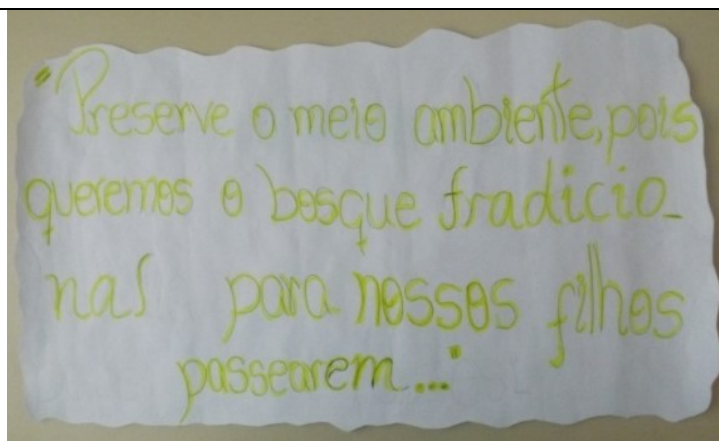 "Preserve o meio ambiente, pois
queremos o bosque tradicio_
nal para nossos filhos
passearem..."